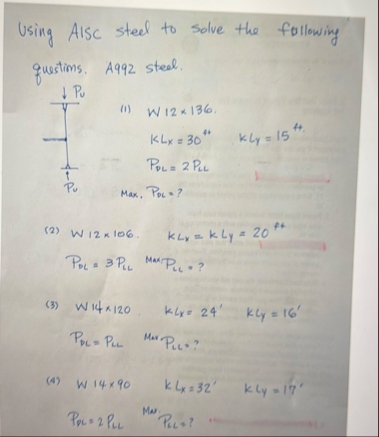 Using AISC steel to solve the following
questions. A992 steel.
↓ Pu
(1) W12×136.
KLx = 30ft KLy = 15ft.
PDL = 2PLL
↑ Pu
Max. PDL = ?
(2) W12×106. KLx = KLy = 20ft
PDL = 3PLL Max PLL = ?
(3) W14×120 KLx = 24' KLy = 16'
PDL = PLL Max PLL = ?
(4) W14×90 KLx = 32' KLy = 17'
PDL = 2PLL Max PLL = ?